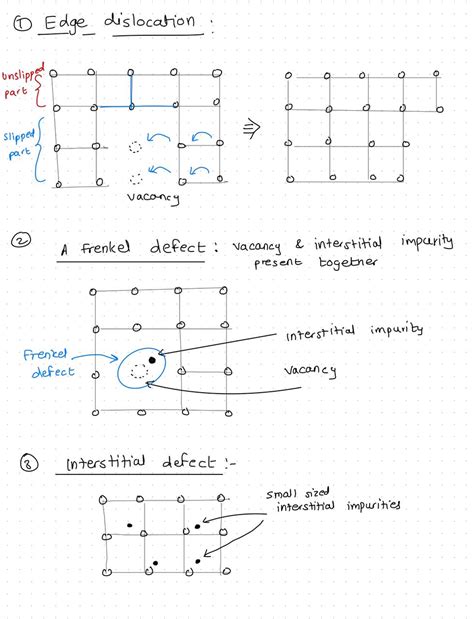 ① Edge dislocation :
unslipped
part
slipped
part
vacancy
② A Frenkel defect : vacancy & interstitial impurity
present together
interstitial impurity
Frenkel
defect
vacancy
③ Interstitial defect :-
small sized
interstitial impurities